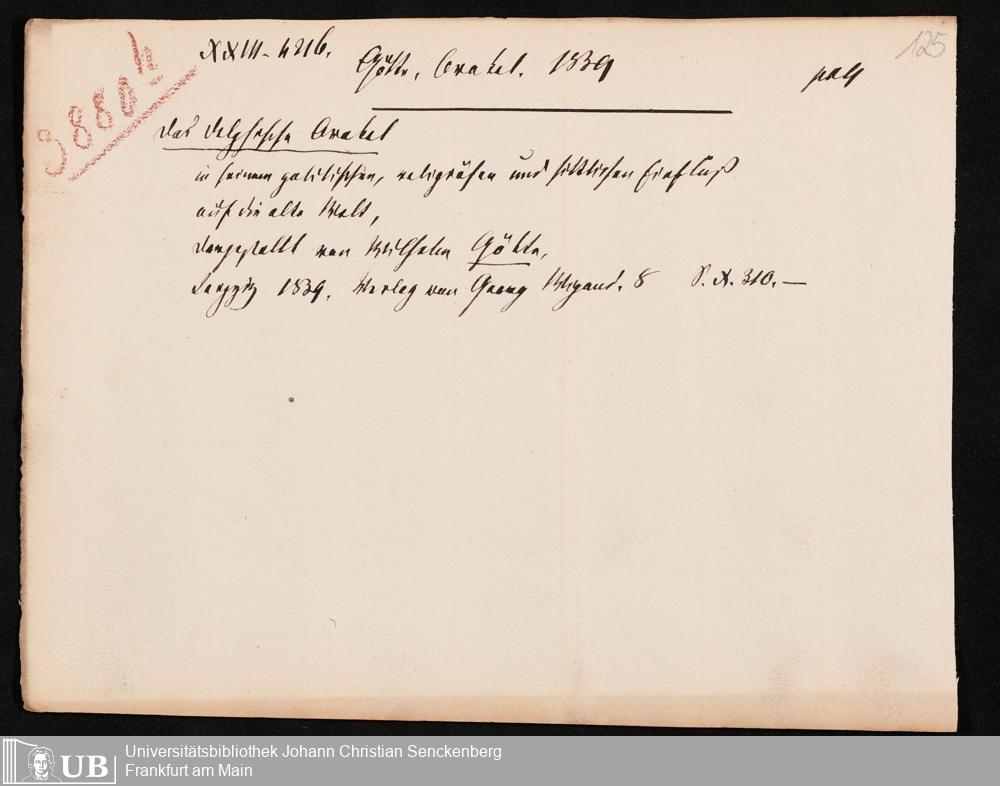 125
38804
XXIII- 421b. Götte, Orakel. 1839
Das delphische Orakel
in seinem politischen, religiösen und sittlichen Einfluß
auf die alte Welt,
dargestellt von Wilhelm Götte,
Leipzig 1839. Verlag von Georg Wigand. 8 S. X. 310.—
UB Universitätsbibliothek Johann Christian Senckenberg
Frankfurt am Main